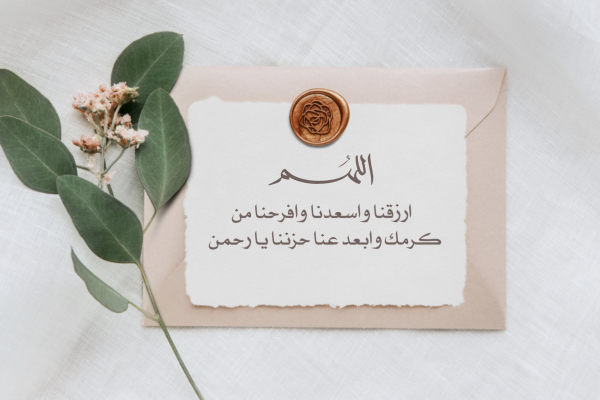 اللهُم
ارزقنا واسعدنا وافرحنا من
كرمك وابعد عنا حزننا يا رحمن